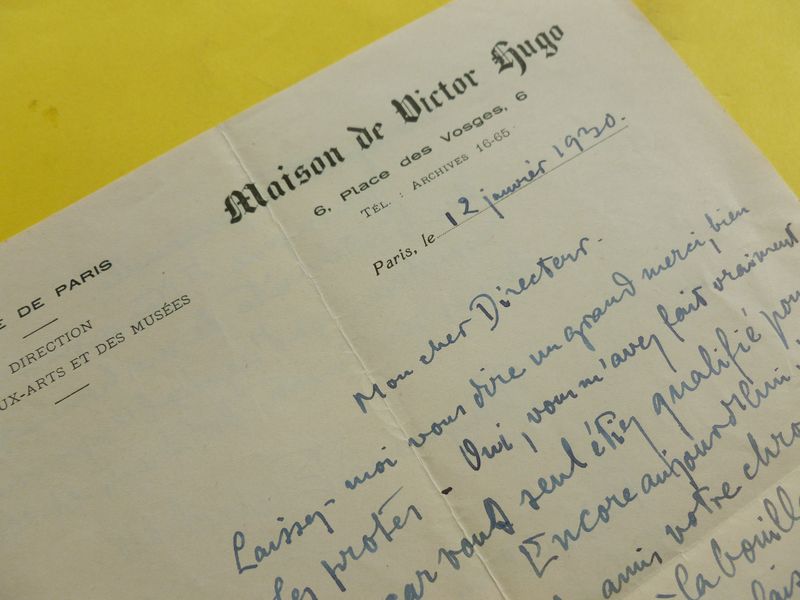 Maison de Victor Hugo
6, Place des Vosges, 6
TÉL. : ARCHIVES 16-65
Paris, le 12 janvier 1930.
E DE PARIS
DIRECTION
UX-ARTS ET DES MUSÉES
Mon cher Directeur.
Laissez-moi vous dire un grand merci, bien
- Oui, vous m'avez fait vraiment
car vous seul étiez qualifié pour
Encore aujourd'hui
amis votre chro